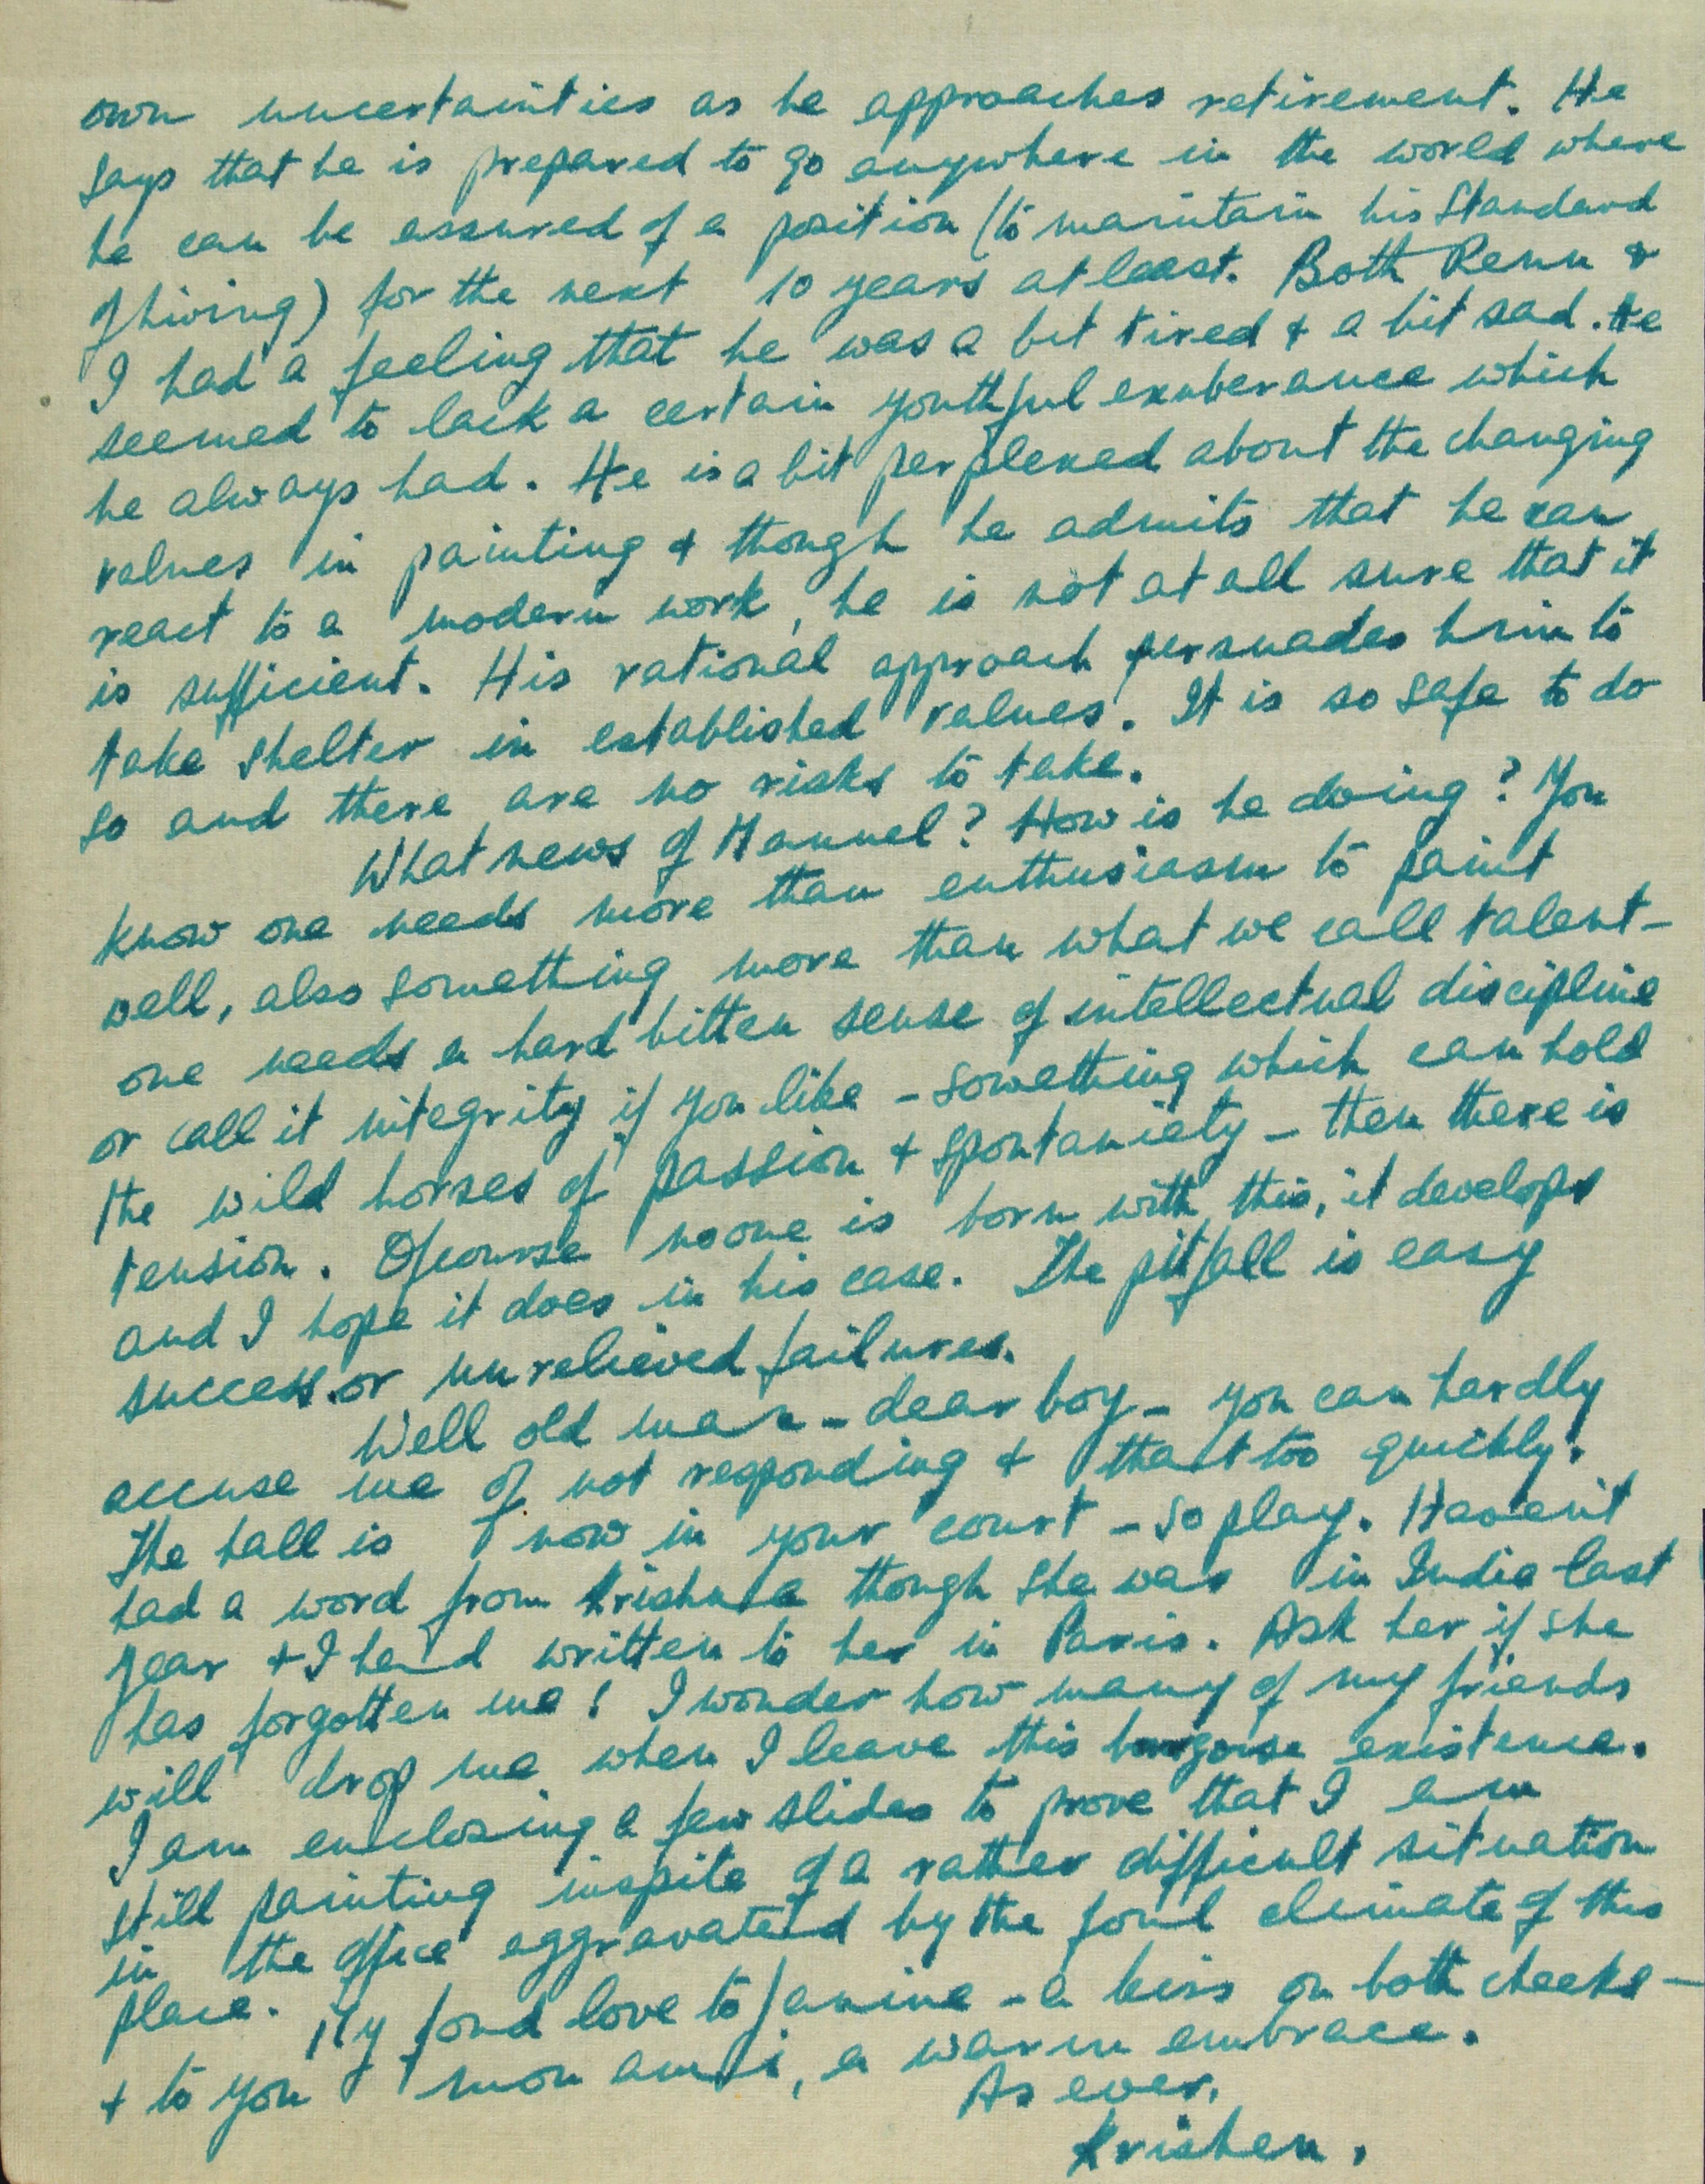 own uncertainties as he approaches retirement. He
says that he is prepared to go anywhere in the world where
he can be assured of a position (to maintain his standard
of living) for the next 10 years at least. Both Renu &
I had a feeling that he was a bit tired & a bit sad. He
seemed to lack a certain youthful exuberance which
he always had. He is a bit perplexed about the changing
values in painting & though he admits that he can
react to a modern work, he is not at all sure that it
is sufficient. His rational approach persuades him to
take shelter in established values. It is so safe to do
so and there are no risks to take.
What news of Manuel? How is he doing? You
know one needs more than enthusiasm to paint
well, also something more than what we call talent -
one needs a hard bitten sense of intellectual discipline
or call it integrity if you like - something which can hold
the wild horses of passion & spontaniety - then there is
tension. Ofcourse noone is born with this, it develops
and I hope it does in his case. The pitfall is easy
success or unrelieved failures.
Well old man - dear boy - you can hardly
accuse me of not responding & that too quickly.
The ball is now in your court - so play. Haven't
had a word from Krishna though she was in India last
year & I had written to her in Paris. Ask her if she
has forgotten me! I wonder how many of my friends
will drop me when I leave this bourgoise existence.
I am enclosing a few slides to prove that I am
still painting inspite of a rather difficult situation
in the office aggravated by the foul climate of this
place. My fond love to Janine - a kiss on both cheeks -
& to you mon ami, a warm embrace.
As ever,
Krishen.